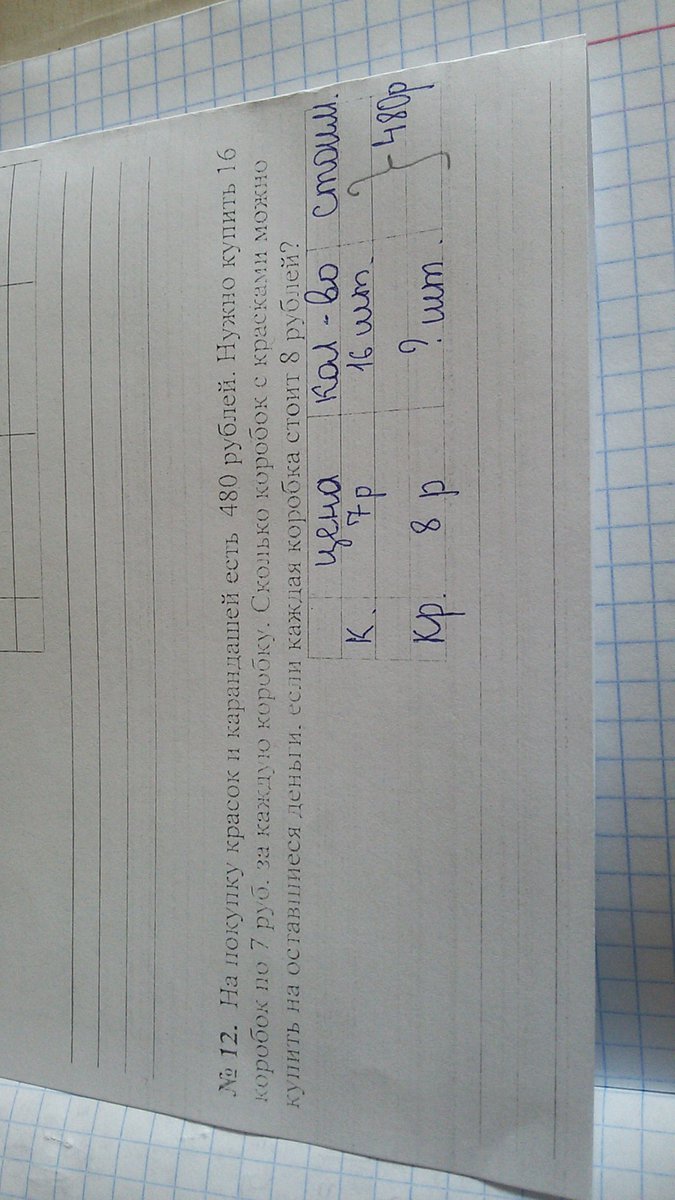 № 12. На покупку красок и карандашей есть 480 рублей. Нужно купить 16
коробок по 7 руб. за каждую коробку. Сколько коробок с красками можно
купить на оставшиеся деньги, если каждая коробка стоит 8 рублей?
цена кол-во стоим.
К. 7р 16 шт. } 480р
Кр. 8 р ? шт.